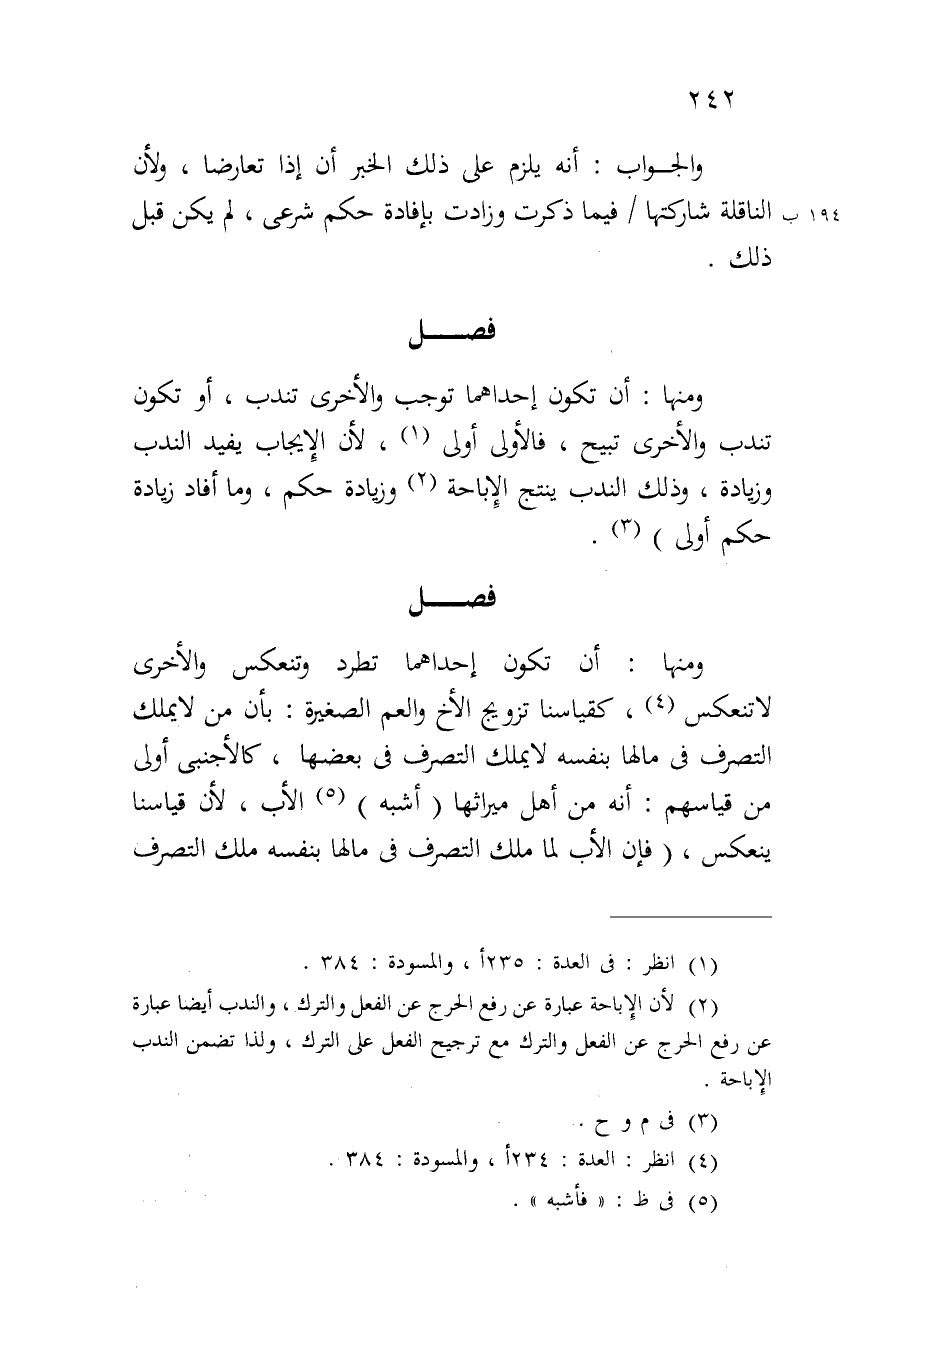 ٢٤٢
والجـواب : أنه يلزم على ذلك الخبر أن إذا تعارضا ، ولأن
١٩٤ ب الناقلة شاركتها / فيما ذكرت وزادت بإفادة حكم شرعى ، لم يكن قبل
ذلك .
فصـــل
ومنها : أن تكون إحداهما توجب والأخرى تندب ، أو تكون
تندب والأخرى تبيح ، فالأولى أولى (١) ، لأن الإيجاب يفيد الندب
وزيادة ، وذلك الندب ينتج الإباحة (٢) وزيادة حكم ، وما أفاد زيادة
حكم أولى ) (٣) .
فصـــل
ومنها : أن تكون إحداهما تطرد وتنعكس والأخرى
لاتنعكس (٤) ، كقياسنا تزويج الأخ والعم الصغيرة : بأن من لايملك
التصرف فى مالها بنفسه لايملك التصرف فى بعضها ، كالأجنبى أولى
من قياسهم : أنه من أهل ميراثها ( أشبه ) (٥) الأب ، لأن قياسنا
ينعكس ، ( فإن الأب لما ملك التصرف فى مالها بنفسه ملك التصرف
(١) انظر : فى العدة : ٢٣٥أ ، والمسودة : ٣٨٤ .
(٢) لأن الإباحة عبارة عن رفع الحرج عن الفعل والترك ، والندب أيضا عبارة
عن رفع الحرج عن الفعل والترك مع ترجيح الفعل على الترك ، ولذا تضمن الندب
الإباحة .
(٣) فى م و ح .
(٤) انظر : العدة : ٢٣٤أ ، والمسودة : ٣٨٤ .
(٥) فى ظ : « فأشبه » .